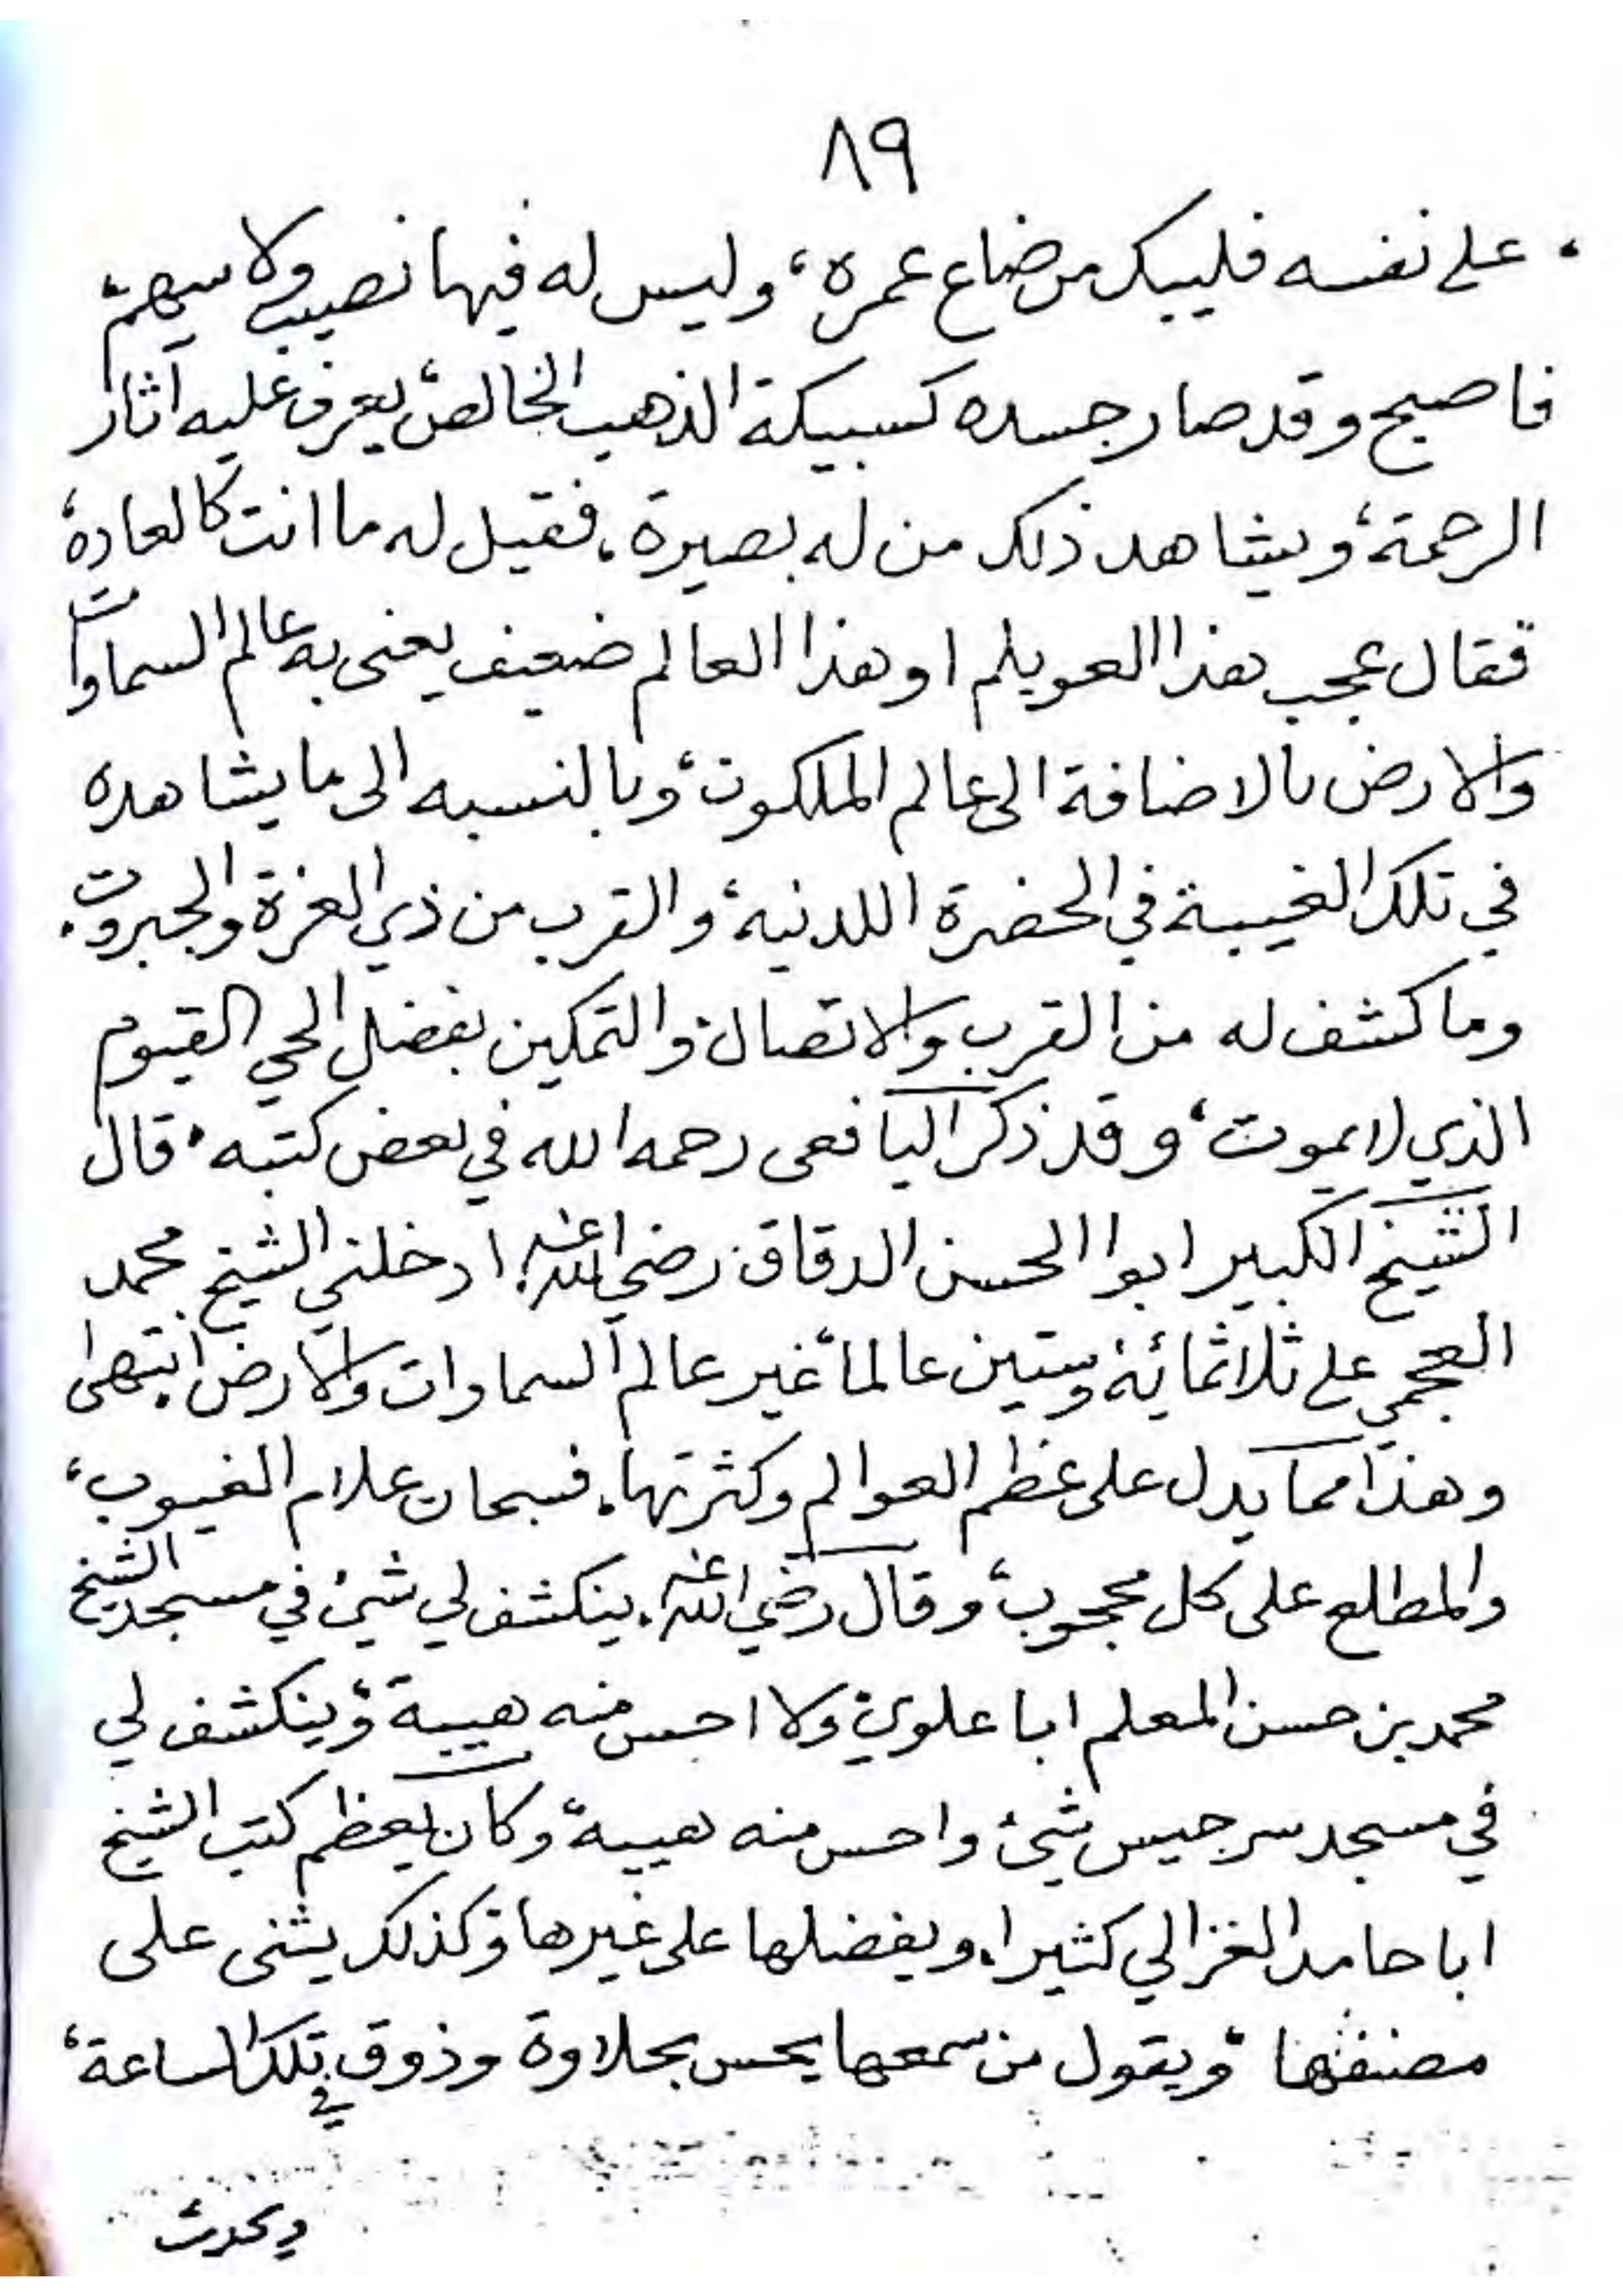 ٨٩
، على نفسه فليبك من ضاع عمره، وليس له فيها نصيب ولا سهم،
فاصبح وقد صار جسده كسبيكة الذهب الخالص، يعرف عليه آثار
الرحمة، ويشاهد ذلك من له بصيرة. فقيل له ما انت كالعادة،
فقال عجب هذا العويلم او هذا العالم ضعيف يعنى به عالم السماوات
والارض بالاضافة الى عالم الملكوت، وبالنسبه الى ما يشاهده
في تلك الغيبة في الحضرة اللدنية، والقرب من ذي العزة والجبروت.
وما كشف له من القرب والاتصال، والتمكين بفضل الحي القيوم
الذي لا يموت، وقد ذكر اليافعى رحمه الله في بعض كتبه، قال
الشيخ الكبير ابوا الحسن الدقاق رضي الله عنه. ادخلني الشيخ محمد
العجمي على ثلاثمائة وستين عالماً غير عالم السماوات والارض. انتهى
وهذا مما يدل على عظم العوالم وكثرتها. فسبحان علام الغيوب،
والمطلع على كل محجوب، وقال رضي الله عنه. ينكشف لي شئ في مسجد الشيخ
محمد بن حسن المعلم ابا علوي، ولا احس منه هيبة، وينكشف لي
في مسجد سرجيس شئ واحس منه هيبة، وكان يعظم كتب الشيخ
ابا حامد الغزالي كثيرا. ويفضلها على غيرها، وكذلك يثنى على
مصنفها، ويقول من سمعها يحس بحلاوة وذوق في تلك الساعة،
ويحدث